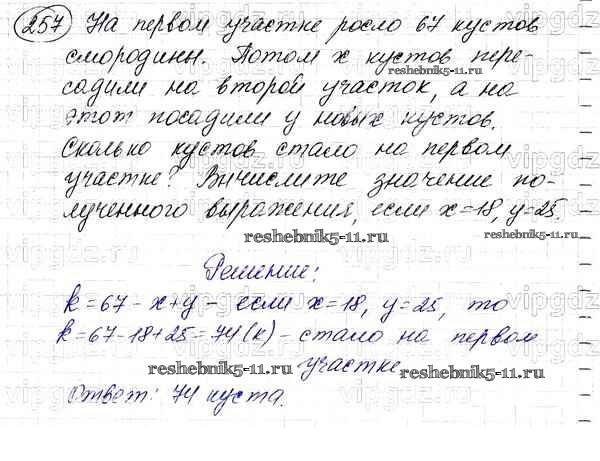 257 На первом участке росло 67 кустов
смородины. Потом х кустов пере-
садили на второй участок, а на
этот посадили у новых кустов.
Сколько кустов стало на первом
участке? Вычислите значение по-
лученного выражения, если х=18, у=25.
Решение:
k=67-х+у - если х=18, у=25, то
k=67-18+25=74(к) - стало на первом
участке
Ответ: 74 куста.
reshebnik5-11.ru
reshebnik5-11.ru
reshebnik5-11.ru
reshebnik5-11.ru
vipgdz.ru